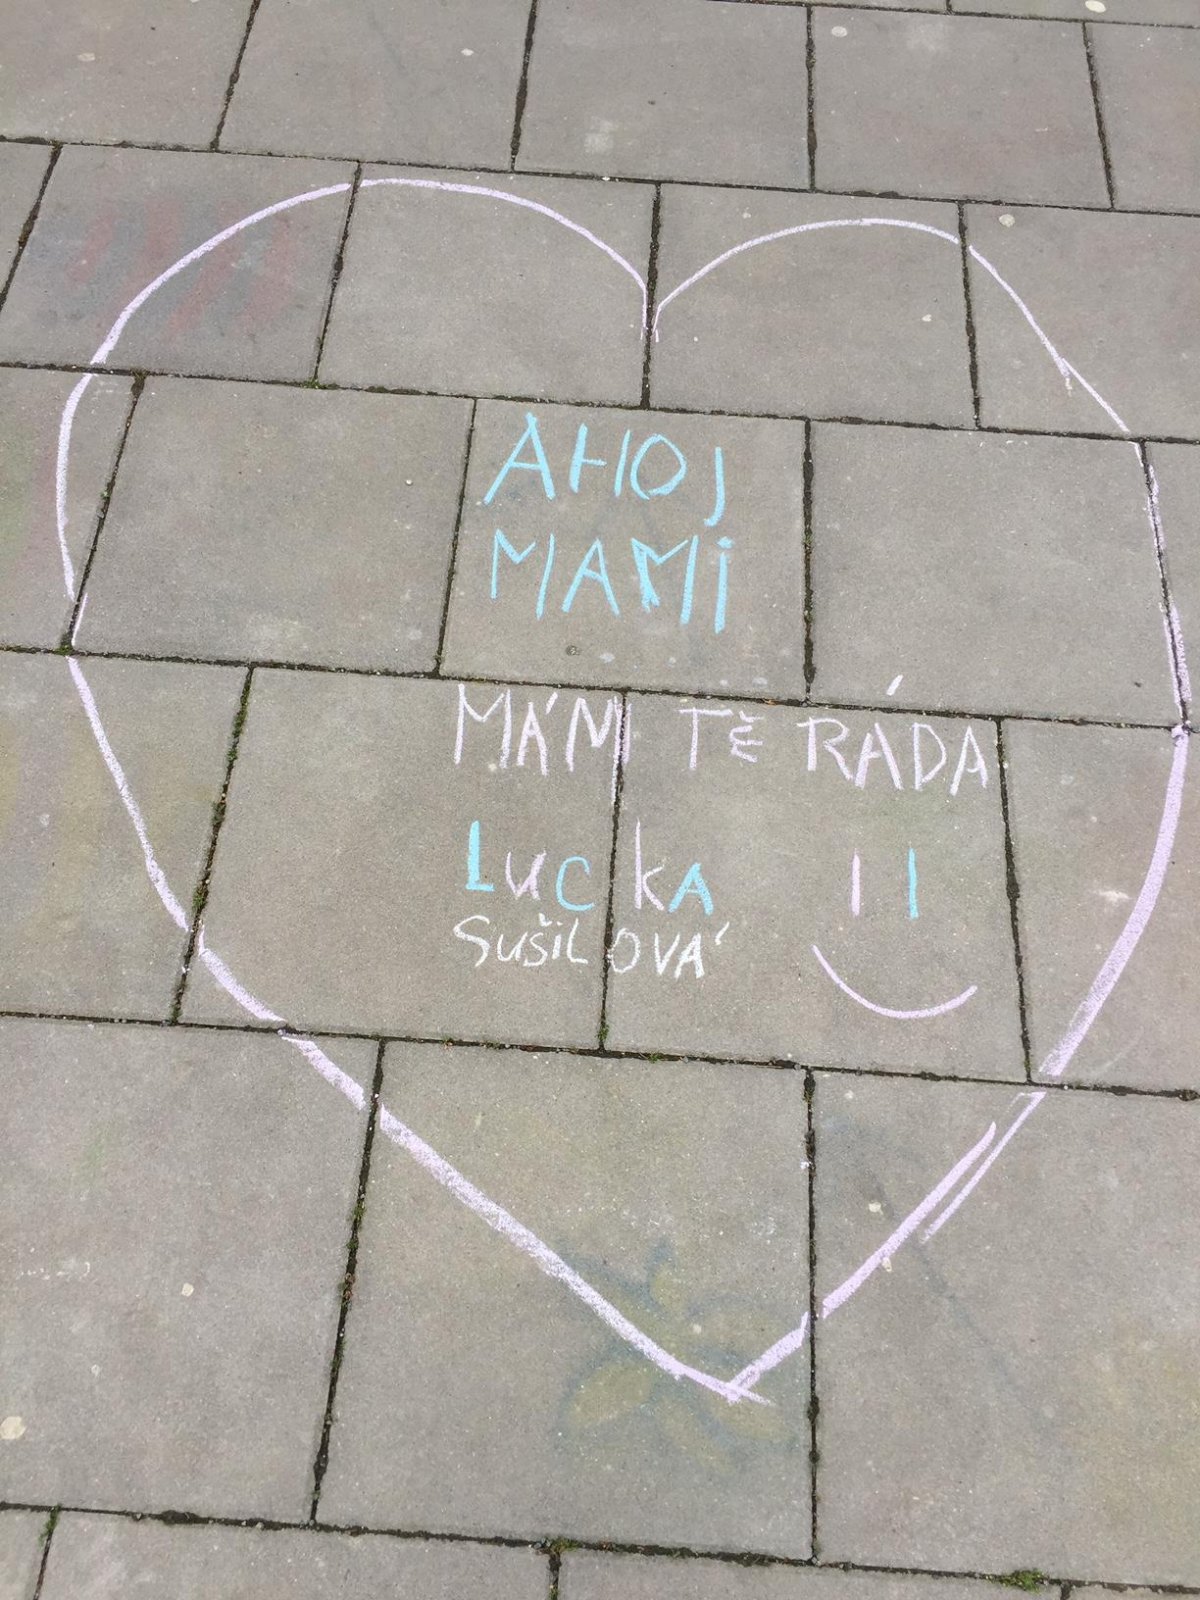 AHOJ
MAMi
MÁM TĚ RÁDA
LUCkA
SUŠiLOVÁ